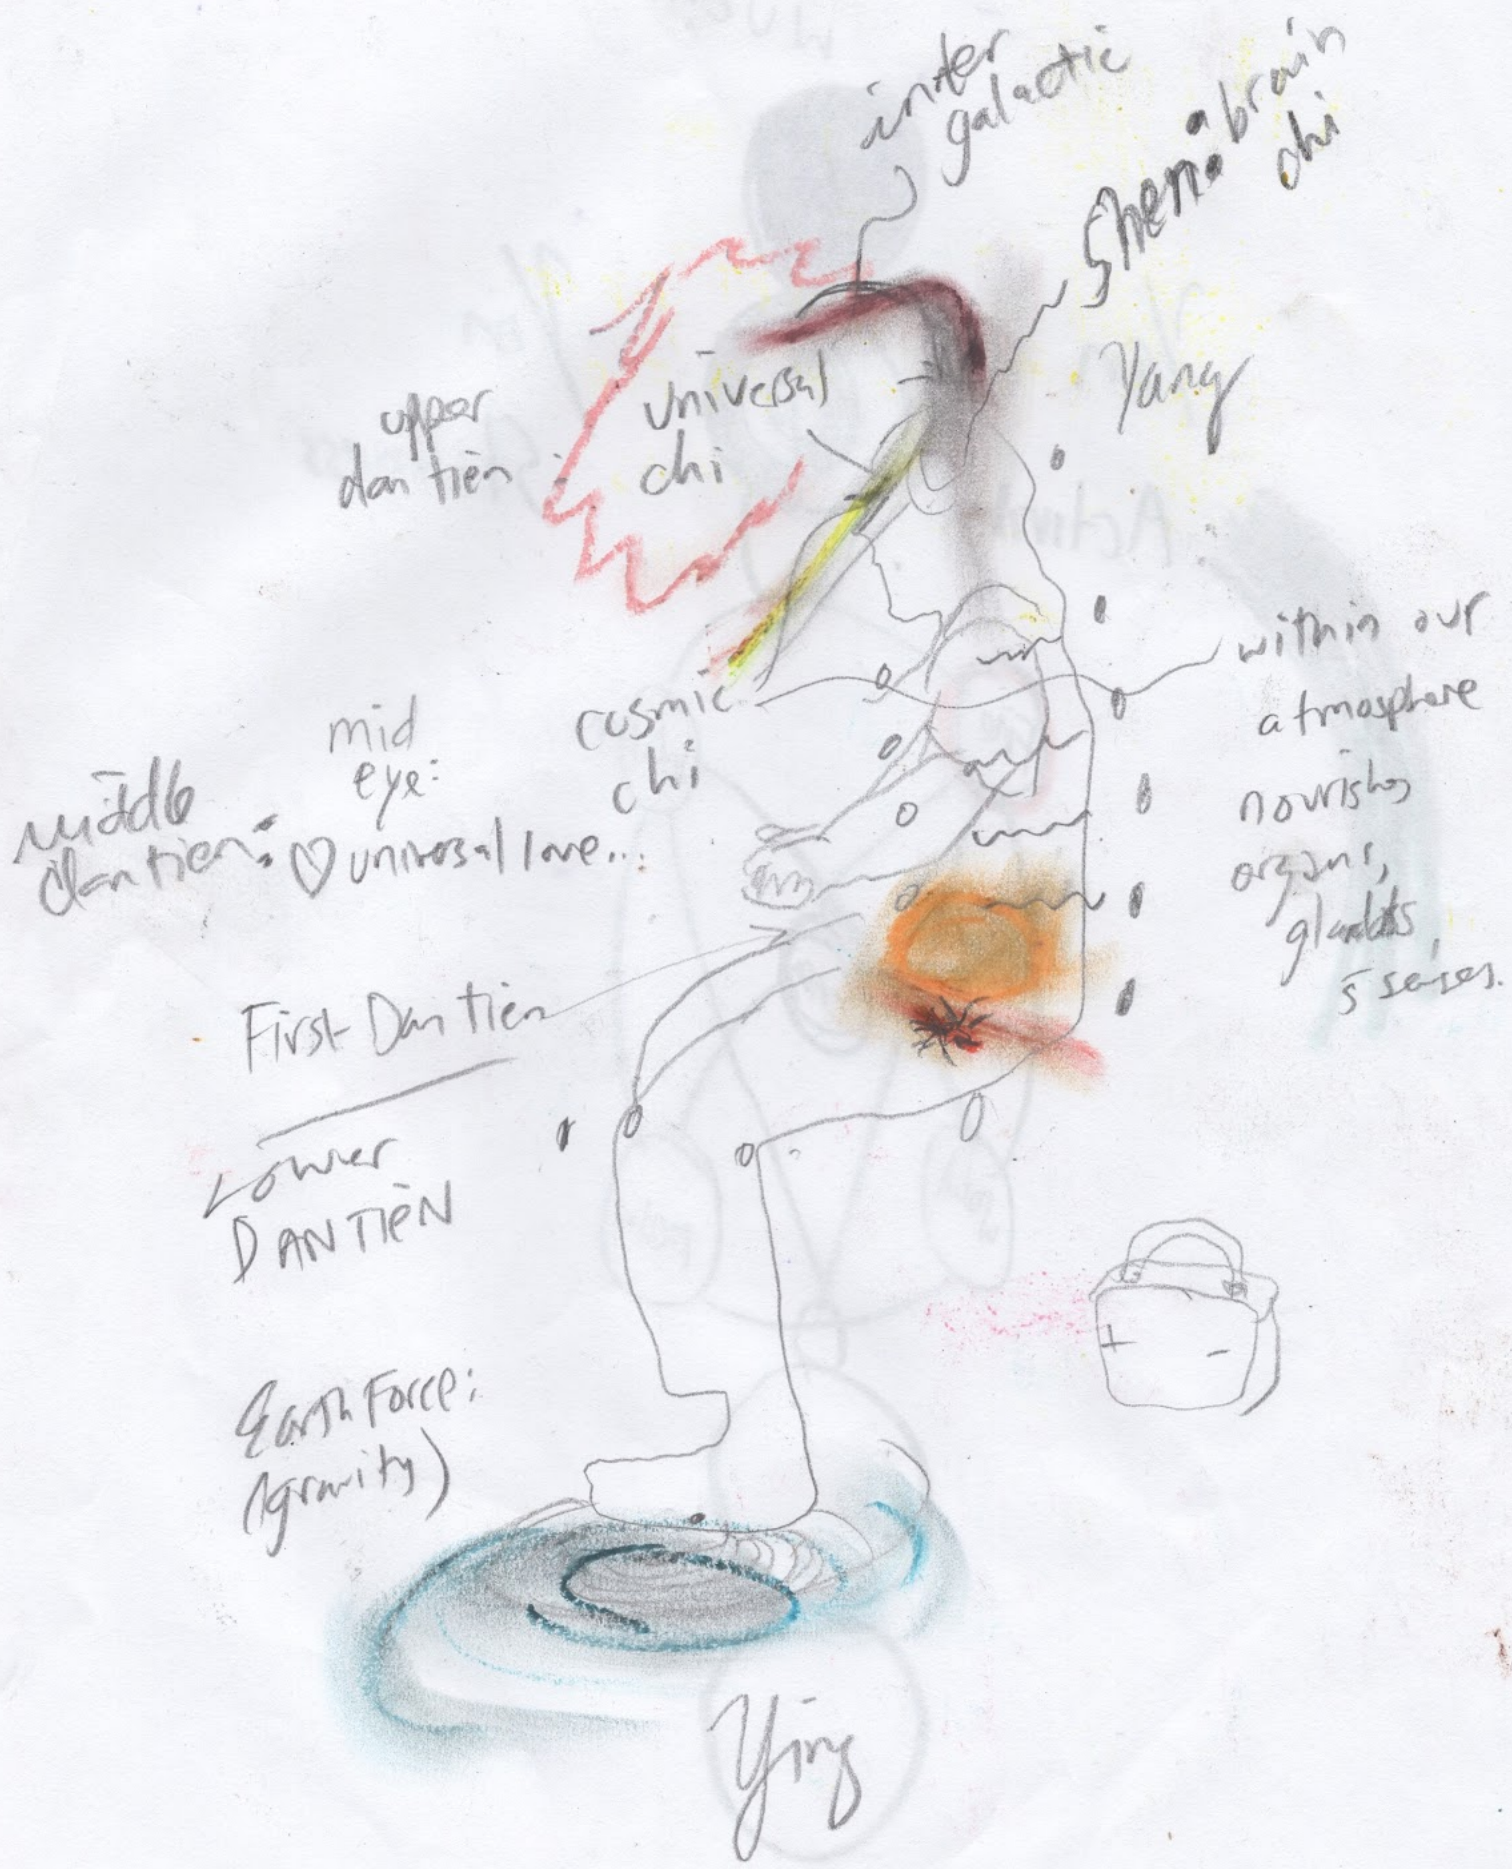 inter
galactic
Shen: a brain
chi
Yang
upper
dan tien:
universal
chi
within our
atmosphere
nourishes
organs,
glands,
5 senses.
cosmic
chi
mid
eye:
middle
dan tien:
♡ universal love...
First Dan tien
Lower
DANTIEN
+ -
Earth Force:
(gravity)
Ying